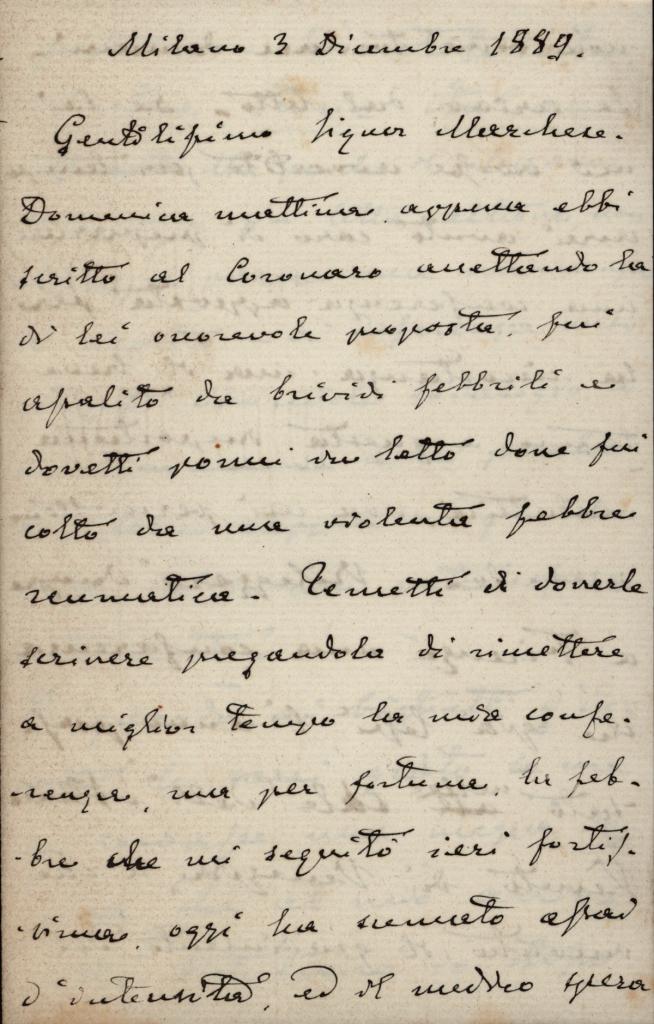 Milano 3 Dicembre 1889.
Gentilissimo Signor Marchese.
Domenica mattina, appena ebbi
scritto al Coronaro accettando la
di lei onorevole proposta, fui
assalito da brividi febbrili e
dovetti pormi in letto dove fui
colto da una violenta febbre
reumatica. Temetti di doverle
scrivere pregandola di rimettere
a miglior tempo la mia confe-
-renza, ma per fortuna, la feb-
-bre che mi seguitò ieri fortis-
-sima, oggi ha scemato assai
d'intensità, ed il medico spera